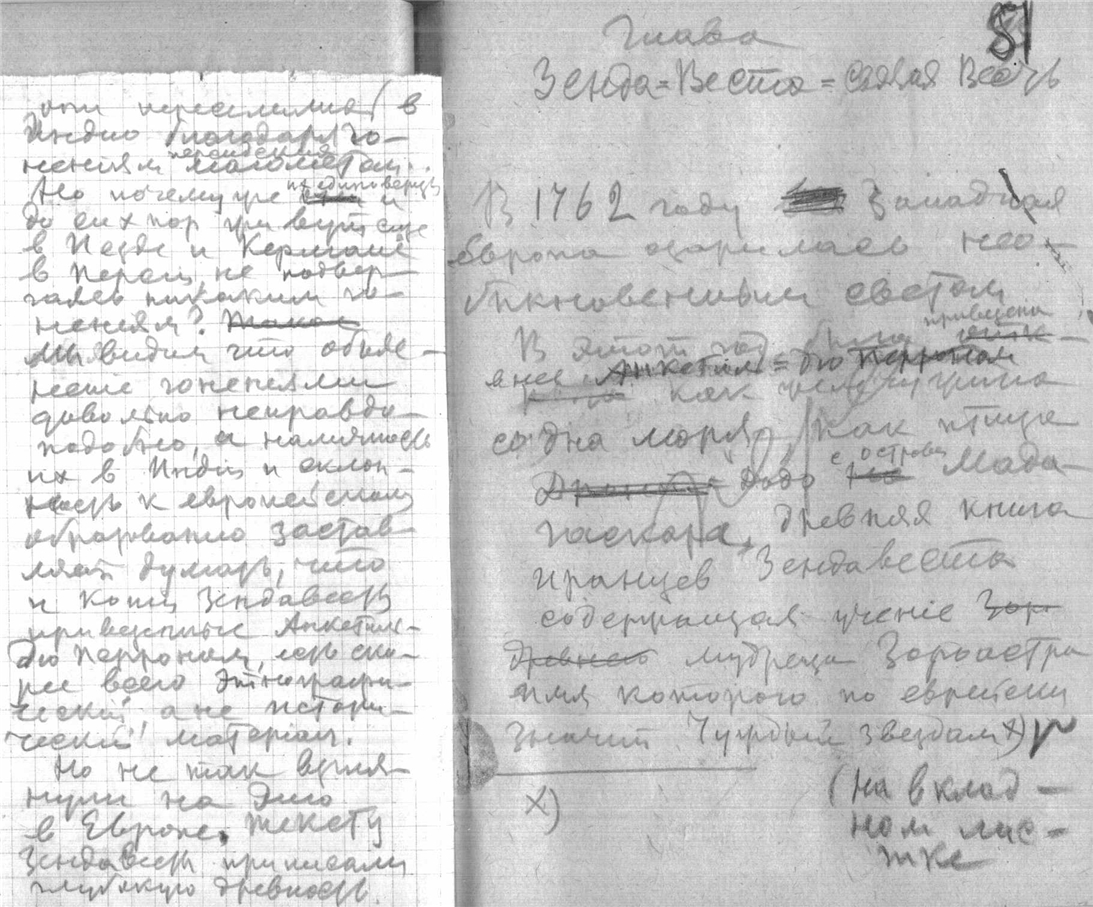 они переселились в
Индию благодаря го-
нениям магометан.
персидских
Но почему же их единоверцы и
до сих пор живущие
в Иезде и Кермане
в Персии не подвер-
гались никаким го-
нениям?
Мы видим что объяс-
нение гонениями
довольно неправдо-
подобно, а
их в Индии и склон-
ность к европейскому
образованию застав-
ляет думать, что
и копии Зендавесты
привезенные Анкетиль-
дю Перроном, есть ско-
рее всего этнографи-
ческий, а не истори-
ческий матерiал.
Но не так взгля-
нули на это
в Европе. Тексту
Зендавесты приписали
глубокую древность.
81
Глава
Зенда=Веста=
В 1762 году Западная
Европа озарилась нео-
быкновенным светом
В этом году была привезена
в нее Анкетиль=дю Перроном
как жемчужина
со дна моря, как птица
Додо с острова Мада-
гаскара, древняя книга
иранцев Зендавеста
содержащая ученiе Зор-
мудреца Зороастра
имя которого по еврейски
значит Чуждый звездам x)
x)
(на вклад-
ном лис-
тке